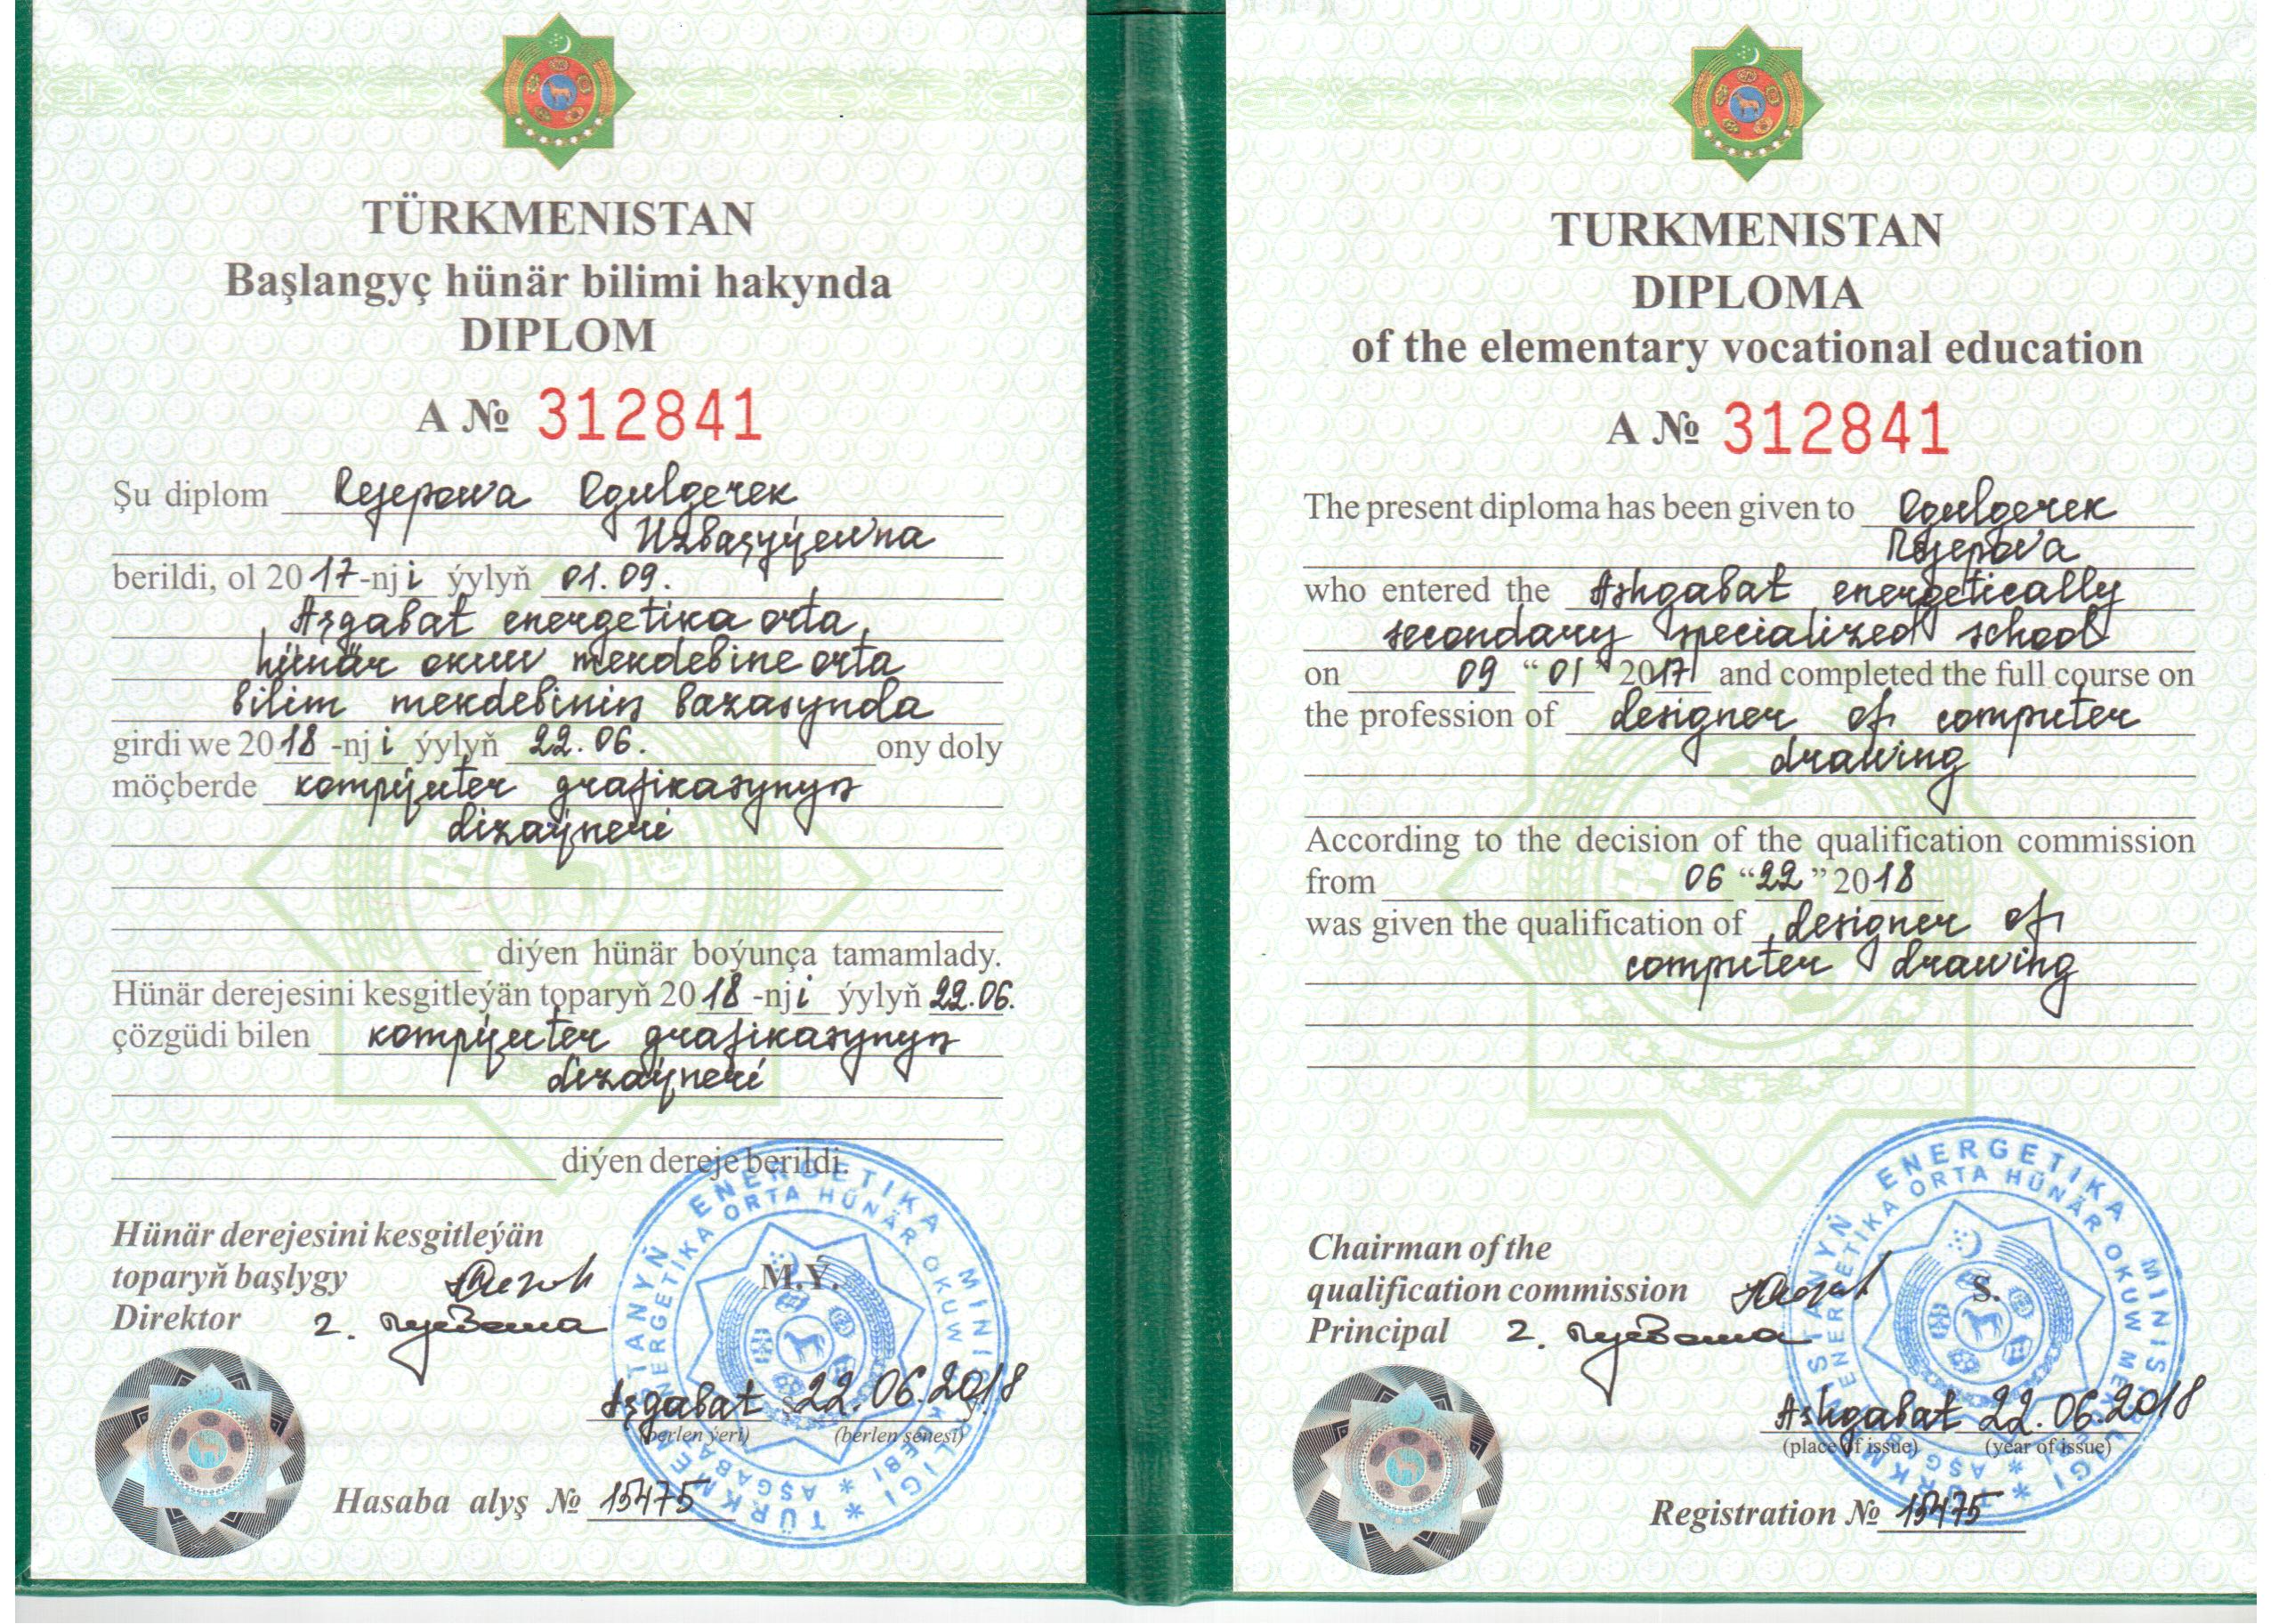 TÜRKMENISTAN
Başlangyç hünär bilimi hakynda
DIPLOM
A № 312841
Şu diplom Rejepowa Ogulgerek
Uzbaşyýewna
berildi, ol 2017-nji ýylyň 01.09.
Aşgabat energetika orta
hünär okuw mekdebine orta
bilim mekdebiniň bazasynda
girdi we 2018-nji ýylyň 22.06. ony doly
möçberde kompýuter grafikasynyň
dizaýneri
diýen hünär boýunça tamamlady.
Hünär derejesini kesgitleýän toparyň 2018-nji ýylyň 22.06.
çözgüdi bilen kompýuter grafikasynyň
dizaýneri
diýen dereje berildi.
Hünär derejesini kesgitleýän
toparyň başlygy
M.Ý.
Direktor
Aşgabat ş. 22.06.2018
(berlen ýeri) (berlen senesi)
Hasaba alyş № 15475
TÜRKMENISTANYŇ ENERGETIKA MINISTRLIGI
ENERGETIKA ORTA HÜNÄR OKUW MEKDEBI
AŞGABAT
TURKMENISTAN
DIPLOMA
of the elementary vocational education
A № 312841
The present diploma has been given to Ogulgerek
Rejepova
who entered the Ashgabat energetically
secondary specialized school
on 09 “01” 2017 and completed the full course on
the profession of designer of computer
drawing
According to the decision of the qualification commission
from 06 “22” 2018
was given the qualification of designer of
computer drawing
Chairman of the
qualification commission
S.
Principal
Ashgabat 22.06.2018
(place of issue) (year of issue)
Registration № 15475
TÜRKMENISTANYŇ ENERGETIKA MINISTRLIGI
ENERGETIKA ORTA HÜNÄR OKUW MEKDEBI
AŞGABAT